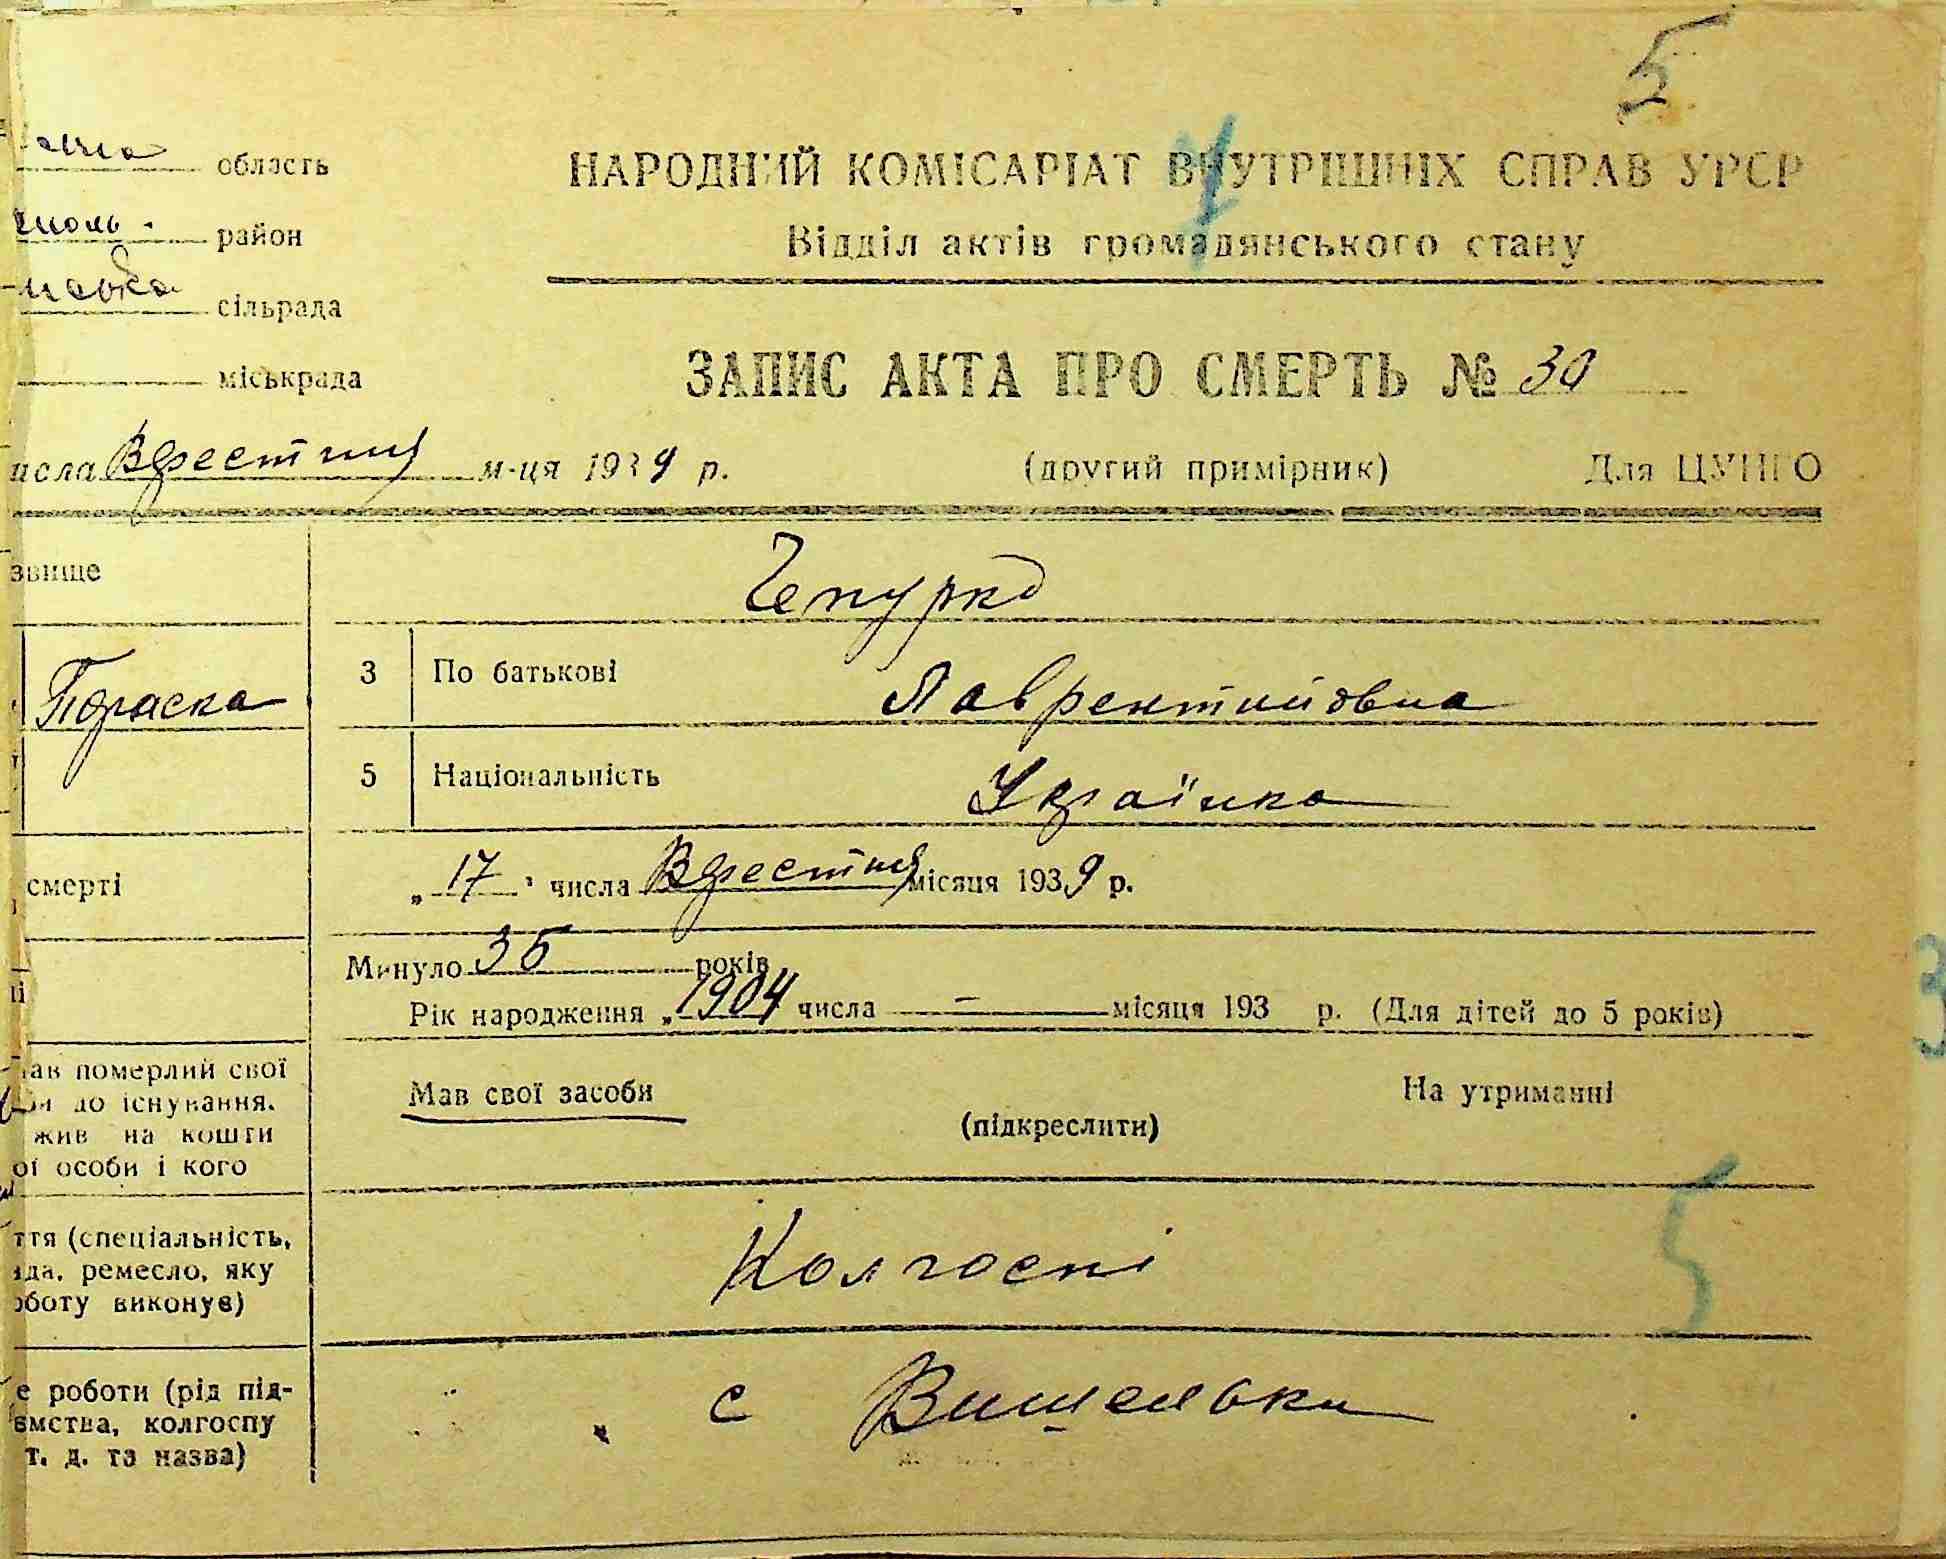 5
область
НАРОДНИЙ КОМІСАРІАТ ВНУТРІШНІХ СПРАВ УРСР
район
Відділ актів громадянського стану
сільрада
міськрада
ЗАПИС АКТА ПРО СМЕРТЬ № 30
исла Врестня м-ця 1939 р. (другий примірник) Для ЦУНГО
звище Чепурко
Параска 3 По батькові Лаврентийовна
5 Національність Українка
смерті „17" числа Врестня місяця 1939 р.
Минуло 35 років
Рік народження „1904 числа – місяця 193 р. (Для дітей до 5 років)
ав померлий свої
до існування.
жив на кошти
ої особи і кого
Мав свої засоби (підкреслити) На утриманні
ття (спеціальність,
да, ремесло, яку
оботу виконує)
Колгоспі
5
е роботи (рід під-
ємства, колгоспу
т. д. та назва)
с Вишеньки
3